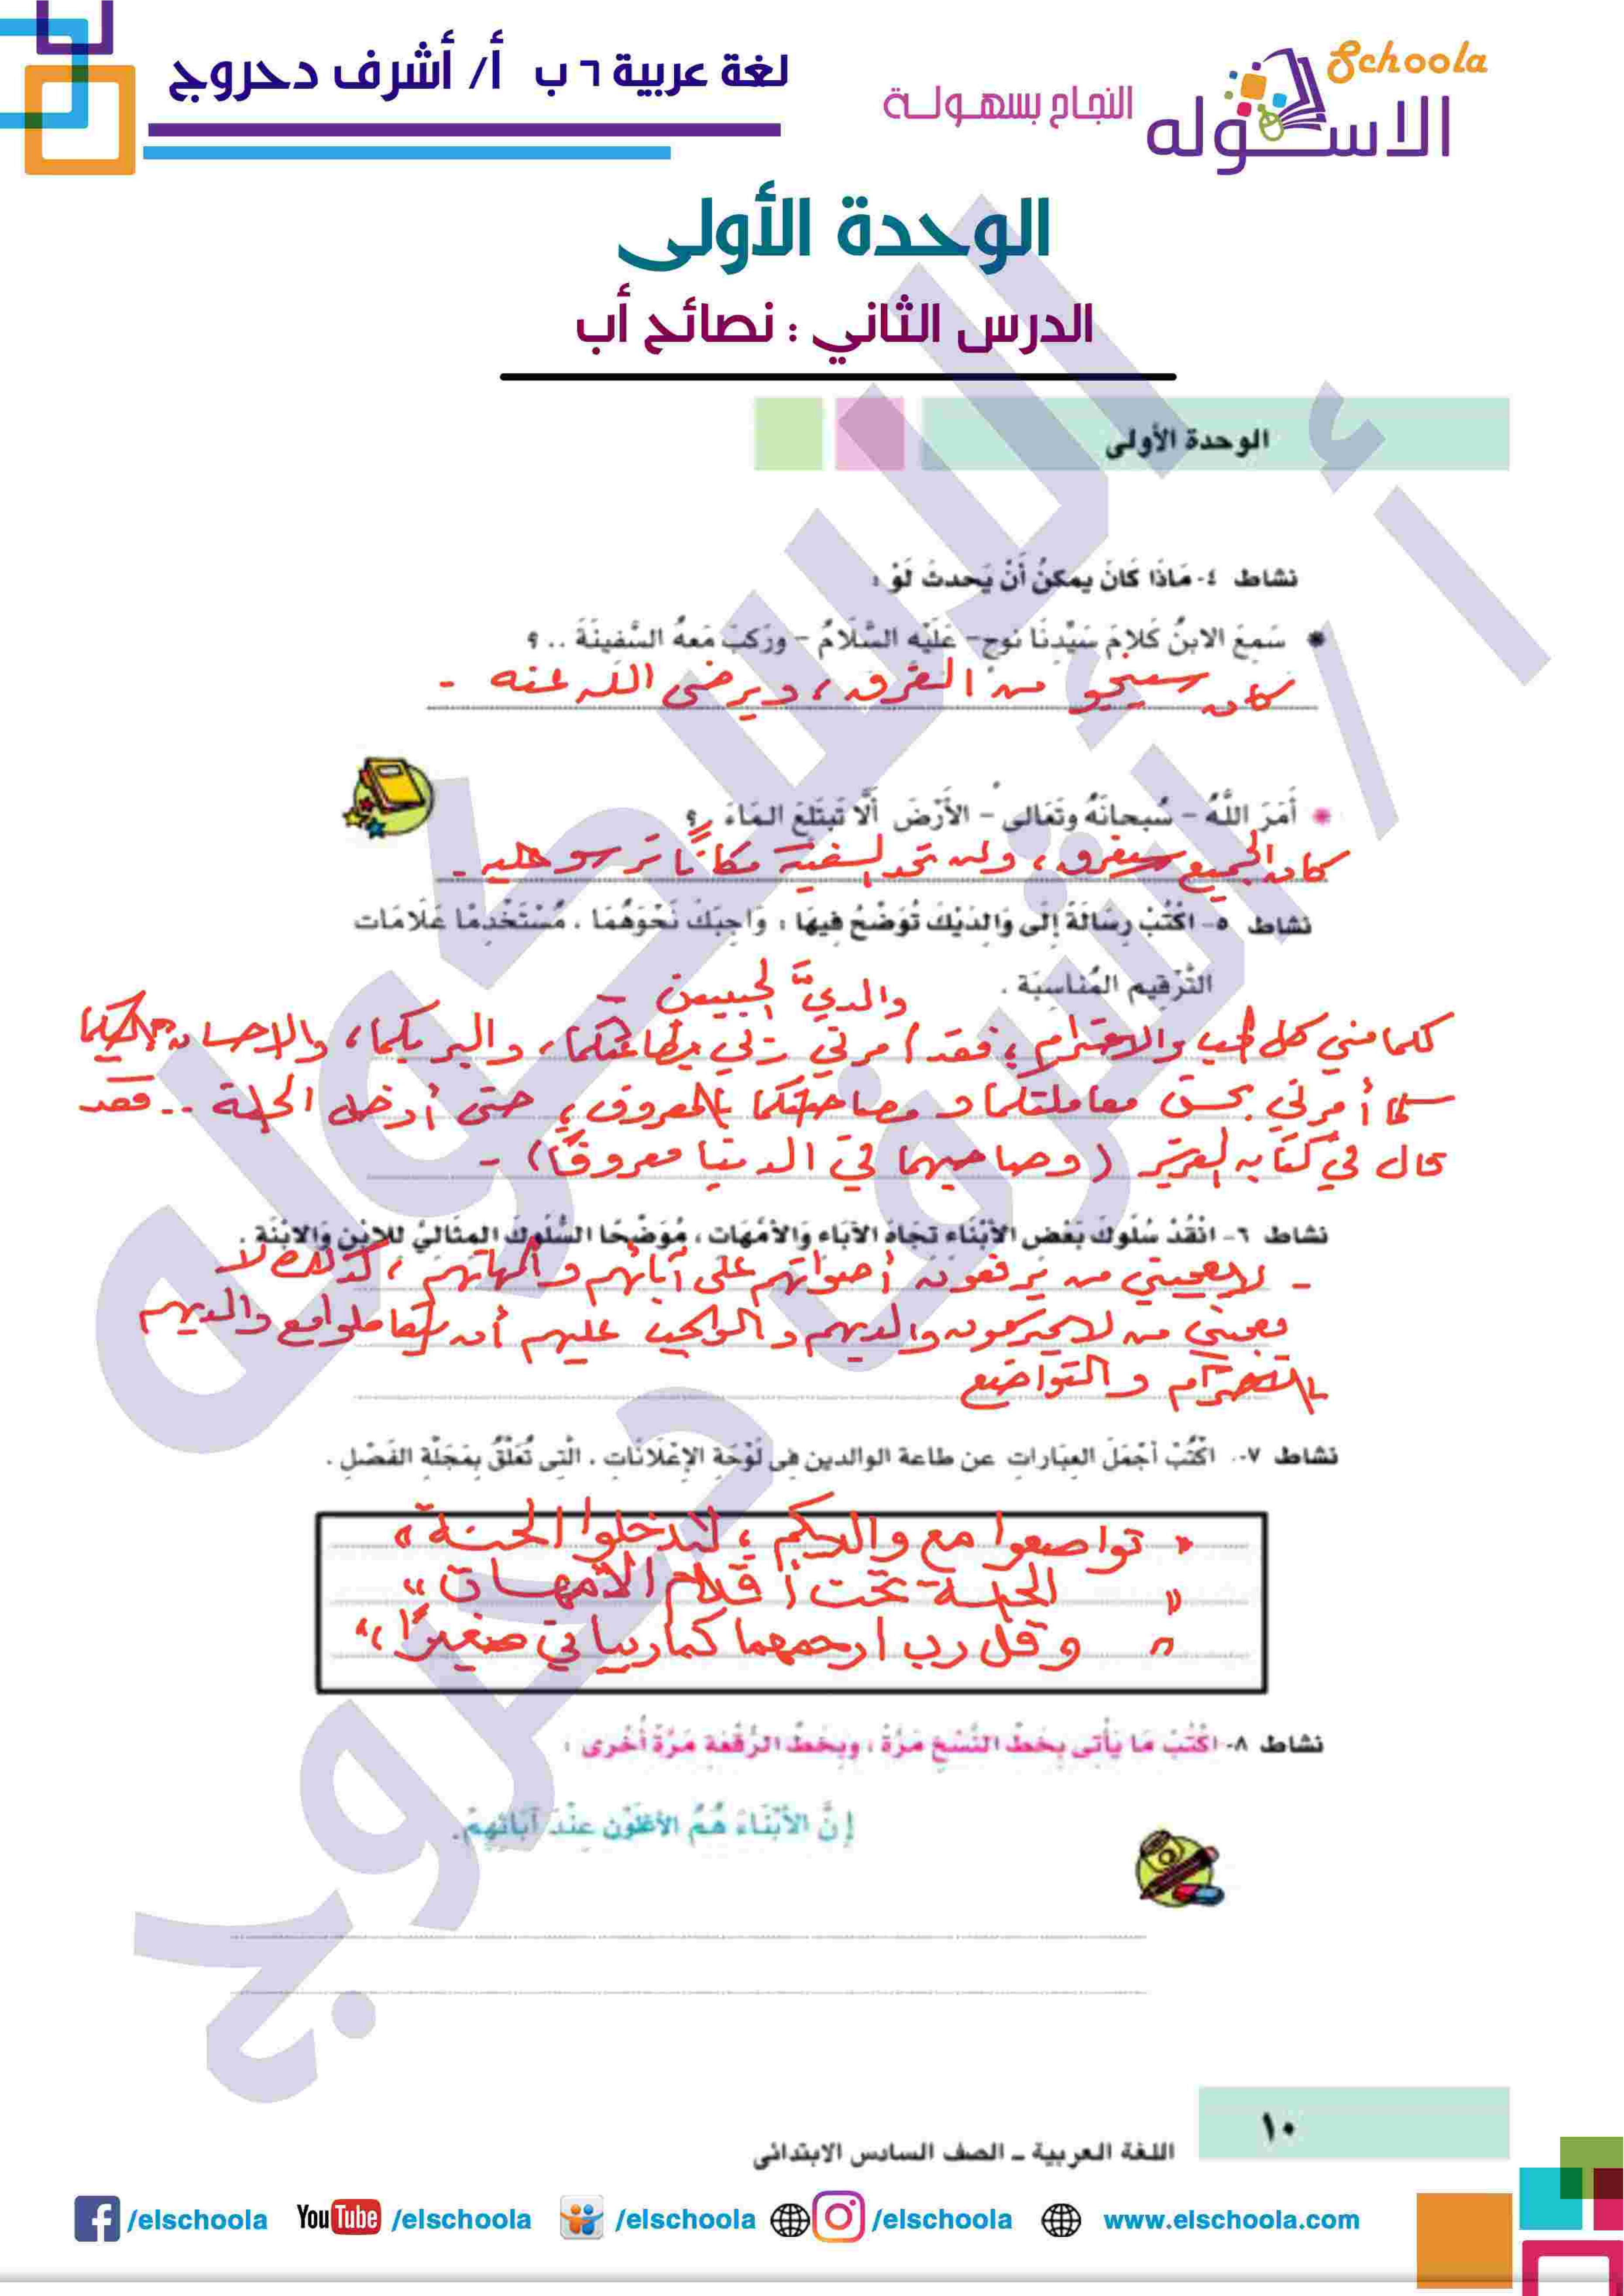 لغة عربية ٦ ب أ/ أشرف دحروج
Schoola
النجاح بسهولة
الاسكوله
الوحدة الأولى
الدرس الثاني : نصائح أب
الوحدة الأولى
نشاط ٤- مَاذَا كَانَ يمكنُ أَنْ يَحدثَ لَوْ :
* سَمِعَ الابنُ كَلامَ سَيِّدنَا نُوحٍ- عَلَيْهِ السَّلَامُ - ورَكبَ مَعهُ السَّفِينَةَ .. ؟
كان سينجو من الغرق، ويرضى الله عنه -
* أَمَرَ اللَّهُ - سُبحانَهُ وتَعَالى - الأَرْضَ أَلَّا تَبتَلعَ المَاءَ . ؟
كان الجميع سيغرق، ولن تجد السفينة مكانًا ترسو عليه -
نشاط ٥- اكْتُبْ رِسَالَةً إِلَى وَالدَيْكَ تُوَضِّحُ فِيهَا : وَاجِبَكَ نَحْوَهُمَا ، مُسْتَخْدِمًا عَلَامَات
التَّرْقِيمِ المُنَاسِبَة .
والديَّ الحبيبين -
لكما مني كل الحب والاحترام؛ فقد أمرني ربي بطاعتكما، والبر بكما، والإحسان إليكما
كما أمرني بحسن معاملتكما و مصاحبتكما بالمعروف؛ حتى أدخل الجنة .. فقد
قال في كتابه العزيز (وصاحبهما في الدنيا معروفًا) -
نشاط ٦- انْقُدْ سُلُوكَ بَعْضِ الأَبْنَاءِ تجَاهَ الآبَاءِ وَالأمَّهَات ، مُوَضِّحًا السُّلُوكَ المثَاليَّ لِلابْنِ وَالابْنَة .
- لا يعجبني من يرفعون أصواتهم على آبائهم وأمهاتهم، كذلك لا
يعجبني من لا يحترمون والديهم والواجب عليهم أن يتعاملوا مع والديهم
باحترام والتواضع
نشاط ٧- اكْتُبْ أجْمَلَ العِبَارَاتِ عن طاعة الوالدين فِى لَوْحَةِ الإِعْلَانَات ، الَّتِى تُعَلَّقُ بِمَجَلَّةِ الفَصْلِ .
" تواضعوا مع والديكم ؛ لتدخلوا الجنة "
" الجنة تحت أقدام الأمهات "
" وقل رب ارحمهما كما ربياني صغيرًا "
نشاط ٨- اكْتُبْ مَا يَأْتِى بِخَطِّ النَّسْخِ مَرَّةً ، وبِخَطِّ الرُّقْعَةِ مَرَّةً أُخْرى :
إنَّ الأبْنَاءَ هُمُ الأغلَوْن عنْدَ آبَائهمْ.
١٠
اللغة العربية - الصف السادس الابتدائى
/elschoola
YouTube /elschoola
/elschoola
/elschoola
www.elschoola.com
أ / أشرف دحروج
الاسكوله